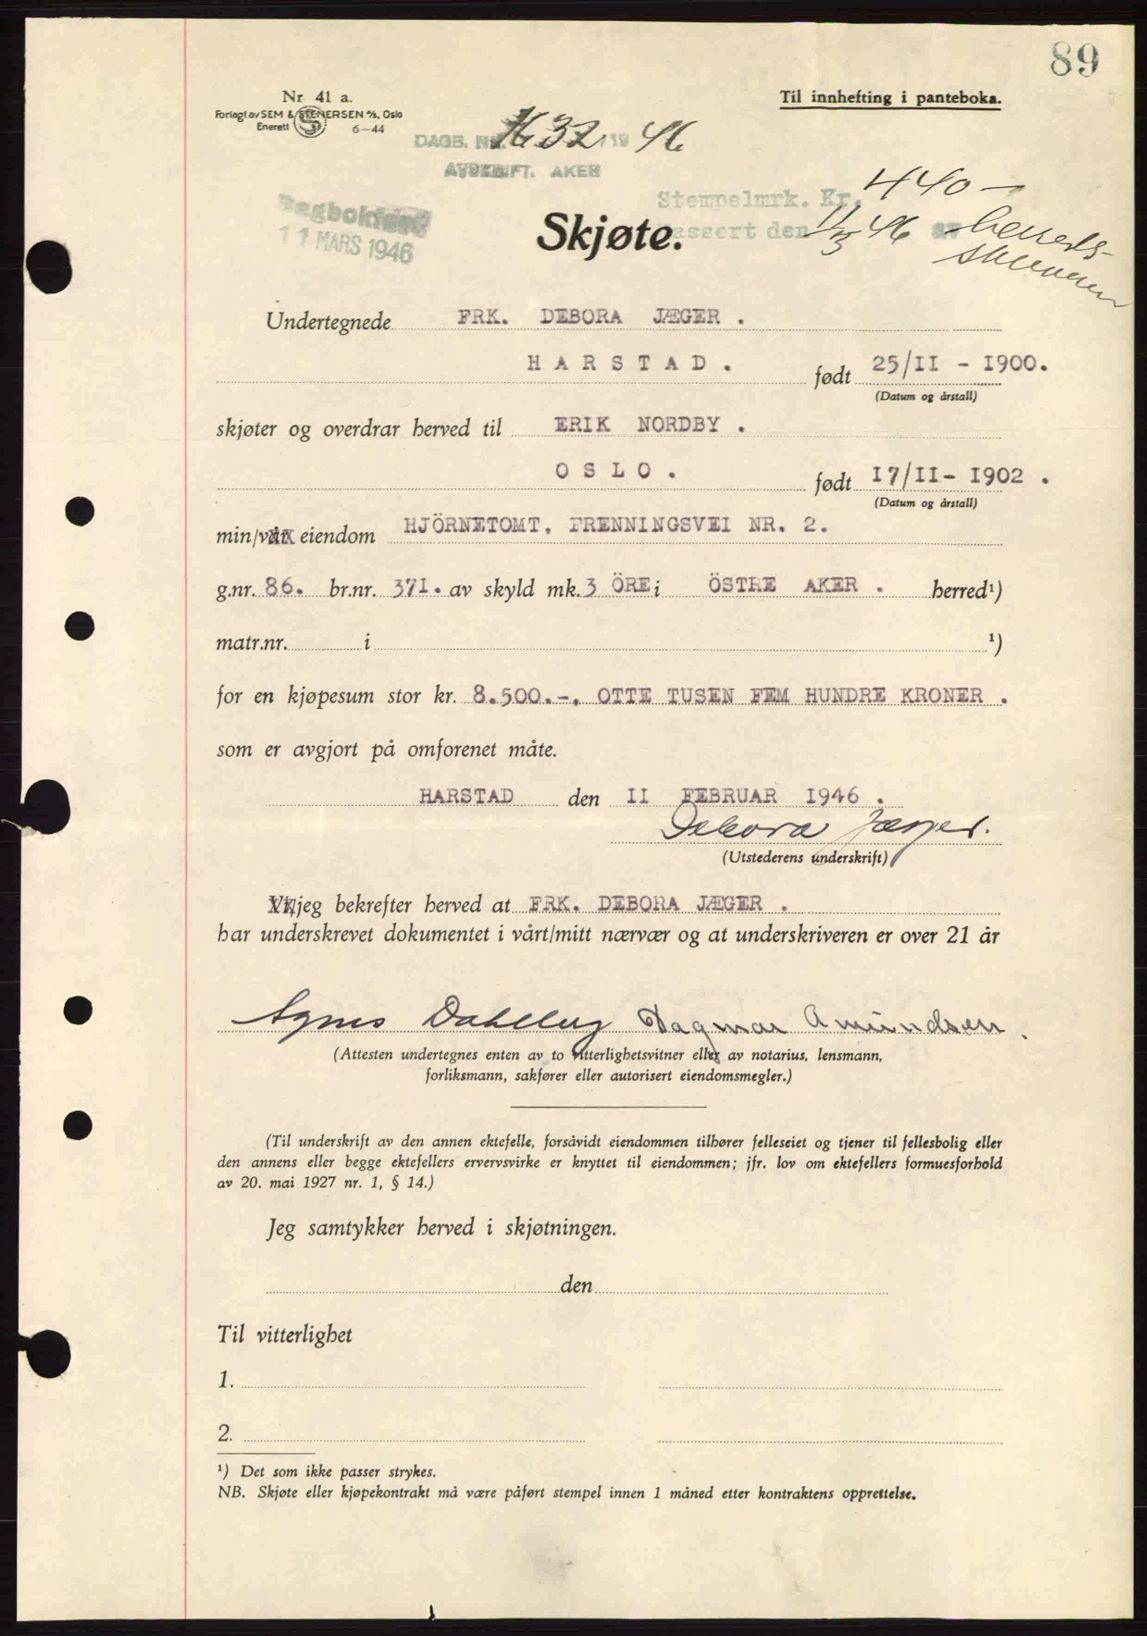 89
Nr. 41 a.
Forlagt av SEM & STENERSEN A/S, Oslo
Enerett 6—44
Til innhefting i panteboka.
DAGB. NR. 1632 19 46
AVSKRIFT. AKER
Stempelmrk. Kr. 440 —
Kassert den 11/3 46
Dagbokført
11 MARS 1946
Skjøte.
Undertegnede FRK. DEBORA JÆGER .
HARSTAD . født 25/II - I900.
(Datum og årstall)
skjøter og overdrar herved til ERIK NORDBY .
OSLO . født I7/II- I902 .
(Datum og årstall)
min/vår eiendom HJÖRNETOMT, FRENNINGSVEI NR. 2.
g.nr. 86. br.nr. 371. av skyld mk. 3 ÖRE i ÖSTRE AKER . herred¹)
matr.nr. i ¹)
for en kjøpesum stor kr. 8.500.-, OTTE TUSEN FEM HUNDRE KRONER .
som er avgjort på omforenet måte.
HARSTAD den II FEBRUAR I946 .
Debora Jæger.
(Utstederens underskrift)
Vi/jeg bekrefter herved at FRK. DEBORA JÆGER .
har underskrevet dokumentet i vårt/mitt nærvær og at underskriveren er over 21 år
Agnes Dahlberg Dagmar Amundsen.
(Attesten undertegnes enten av to vitterlighetsvitner eller av notarius, lensmann,
forliksmann, sakfører eller autorisert eiendomsmegler.)
(Til underskrift av den annen ektefelle, forsåvidt eiendommen tilhører felleseiet og tjener til fellesbolig eller
den annens eller begge ektefellers ervervsvirke er knyttet til eiendommen; jfr. lov om ektefellers formuesforhold
av 20. mai 1927 nr. 1, § 14.)
Jeg samtykker herved i skjøtningen.
den
Til vitterlighet
1.
2.
¹) Det som ikke passer strykes.
NB. Skjøte eller kjøpekontrakt må være påført stempel innen 1 måned etter kontraktens opprettelse.